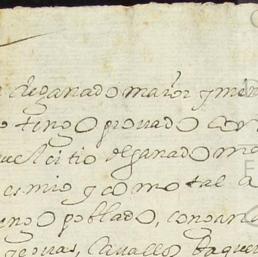 de ganado maior y men
tengo provado con
sitio de ganado ma
es mio y como tal
tengo poblado, con gana
yeguas, Cavallos Baque